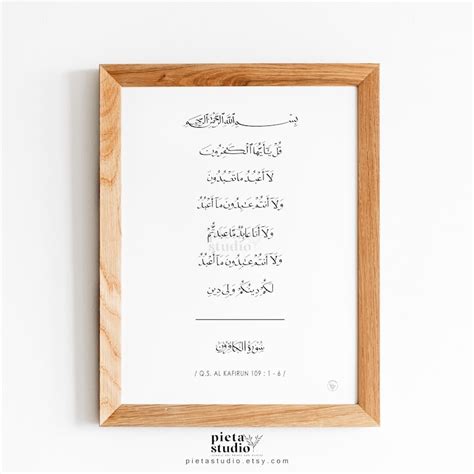 بِسْمِ اللَّهِ الرَّحْمَٰنِ الرَّحِيمِ
قُلْ يَٰٓأَيُّهَا ٱلْكَٰفِرُونَ
لَآ أَعْبُدُ مَا تَعْبُدُونَ
وَلَآ أَنتُمْ عَٰبِدُونَ مَآ أَعْبُدُ
وَلَآ أَنَا۠ عَابِدٌ مَّا عَبَدتُّمْ
pieta
studio
وَلَآ أَنتُمْ عَٰبِدُونَ مَآ أَعْبُدُ
لَكُمْ دِينُكُمْ وَلِىَ دِينِ
سورة الكافرون
/ Q.S. AL KAFIRUN 109 : 1 - 6 /
pieta
studio
pietastudio.etsy.com